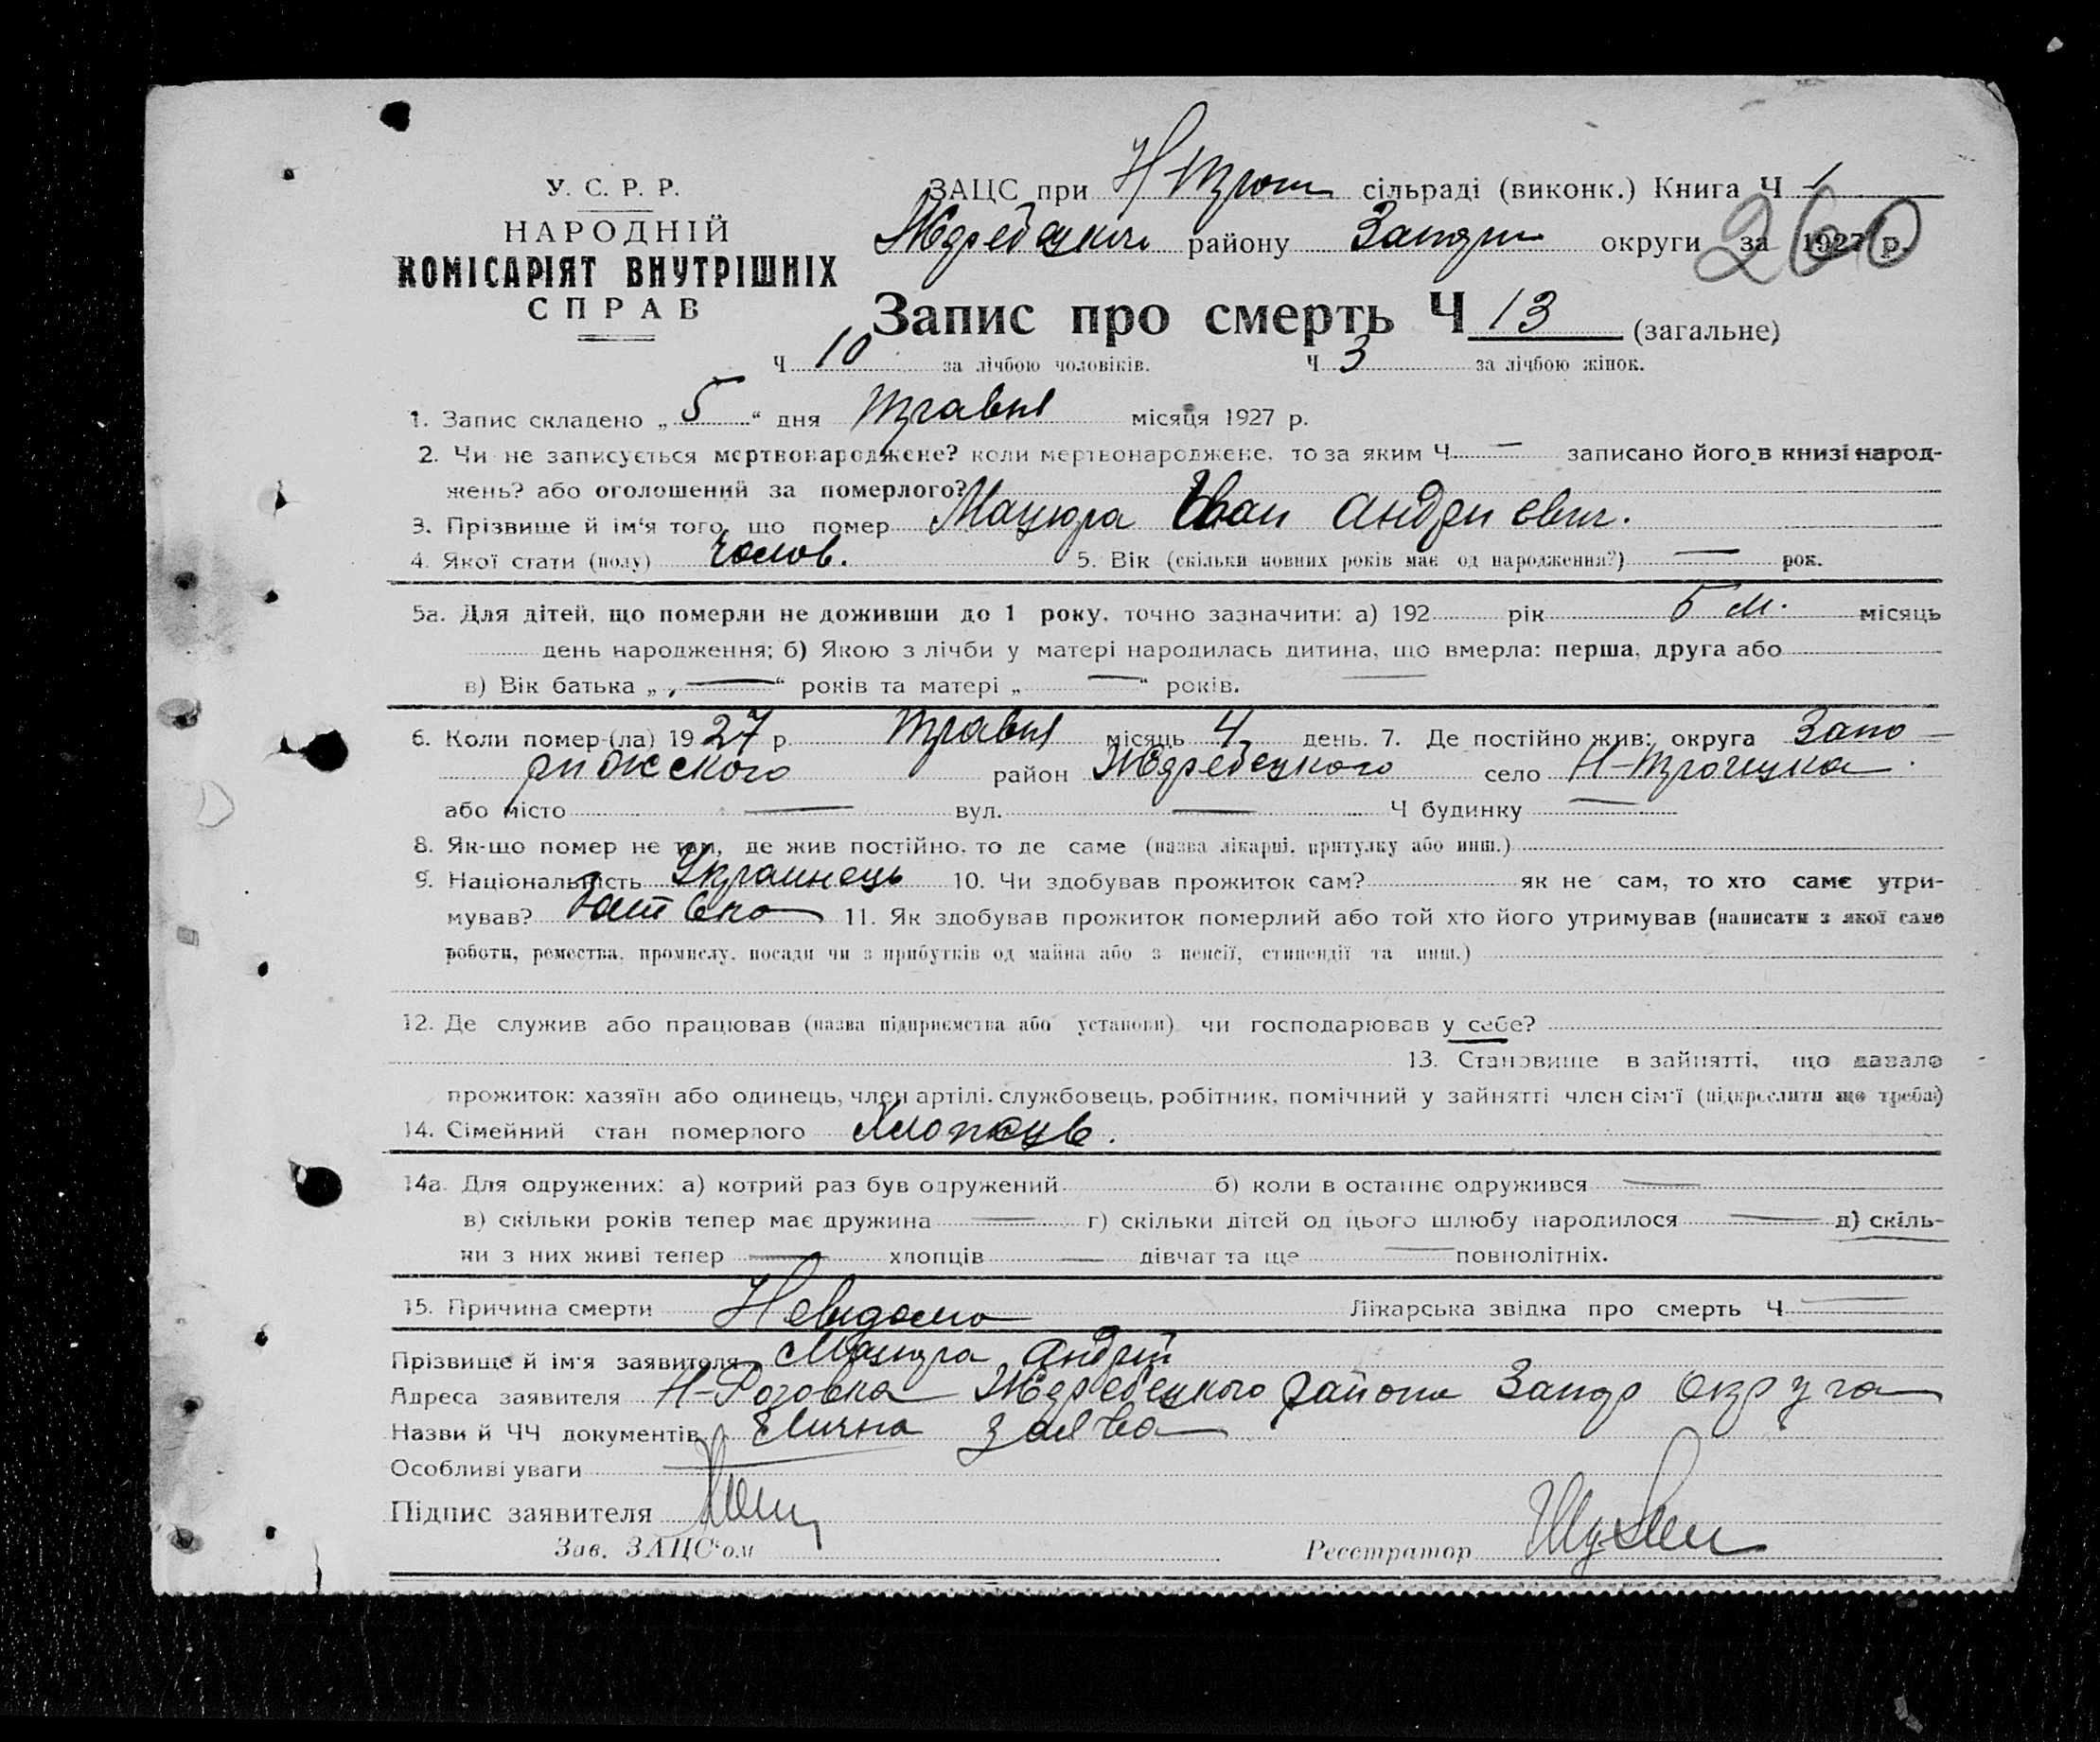 У. С. Р. Р.
НАРОДНІЙ
КОМІСАРІЯТ ВНУТРІШНІХ
СПРАВ
ЗАЦС при Н-Трош сільраді (виконк.) Книга Ч 1
Жеребецький району Запоріж округи за 1927 р.
260
Запис про смерть Ч 13 (загальне)
Ч 10 за лічбою чоловіків. Ч 3 за лічбою жінок.
1. Запис складено „ 5 “ дня Травня місяця 1927 р.
2. Чи не записується мертвонароджене? коли мертвонароджене, то за яким Ч — записано його в книзі народ-
жень? або оголошений за померлого?
3. Прізвище й ім'я того, що помер Мацюра Іван Андриєвич.
4. Якої стати (полу) чолов. 5. Вік (скільки повних років має од народження?) — рок.
5а. Для дітей, що померли не доживши до 1 року, точно зазначити: а) 192 рік 5 м. місяць
день народження; б) Якою з лічби у матері народилась дитина, що вмерла: перша, друга або
в) Вік батька „ — “ років та матері „ — “ років.
6. Коли помер-(ла) 1927 р. Травня місяць 4 день. 7. Де постійно жив: округа Запо-
рижского район Жеребецкого село Н-Троицка.
або місто — вул. — Ч будинку —
8. Як-що помер не там, де жив постійно, то де саме (назва лікарні, притулку або инш.)
9. Національність Украинець 10. Чи здобував прожиток сам? як не сам, то хто саме утри-
мував? Батько 11. Як здобував прожиток померлий або той хто його утримував (написати з якої саме
роботи, ремества, промислу, посади чи з прибутків од майна або з пенсії, стипендії та инш.)
12. Де служив або працював (назва підприємства або установи) чи господарював у себе?
13. Становище в зайнятті, що давало
прожиток: хазяїн або одинець, член артілі, службовець, робітник, помічний у зайнятті член сім'ї (підкреслити що треба)
14. Сімейний стан померлого Хлопець.
14а. Для одружених: а) котрий раз був одружений б) коли в останнє одружився —
в) скільки років тепер має дружина — г) скільки дітей од цього шлюбу народилося — д) скіль-
ки з них живі тепер — хлопців — дівчат та ще — повнолітніх.
15. Причина смерти Невидомо Лікарська звідка про смерть Ч —
Прізвище й ім'я заявителя Мацюра Андрій
Адреса заявителя Н-Розовка Жеребецкого району Запор округа
Назви й ЧЧ документів Влична заява
Особливі уваги —
Підпис заявителя
Зав. ЗАЦС‘ом Реєстратор